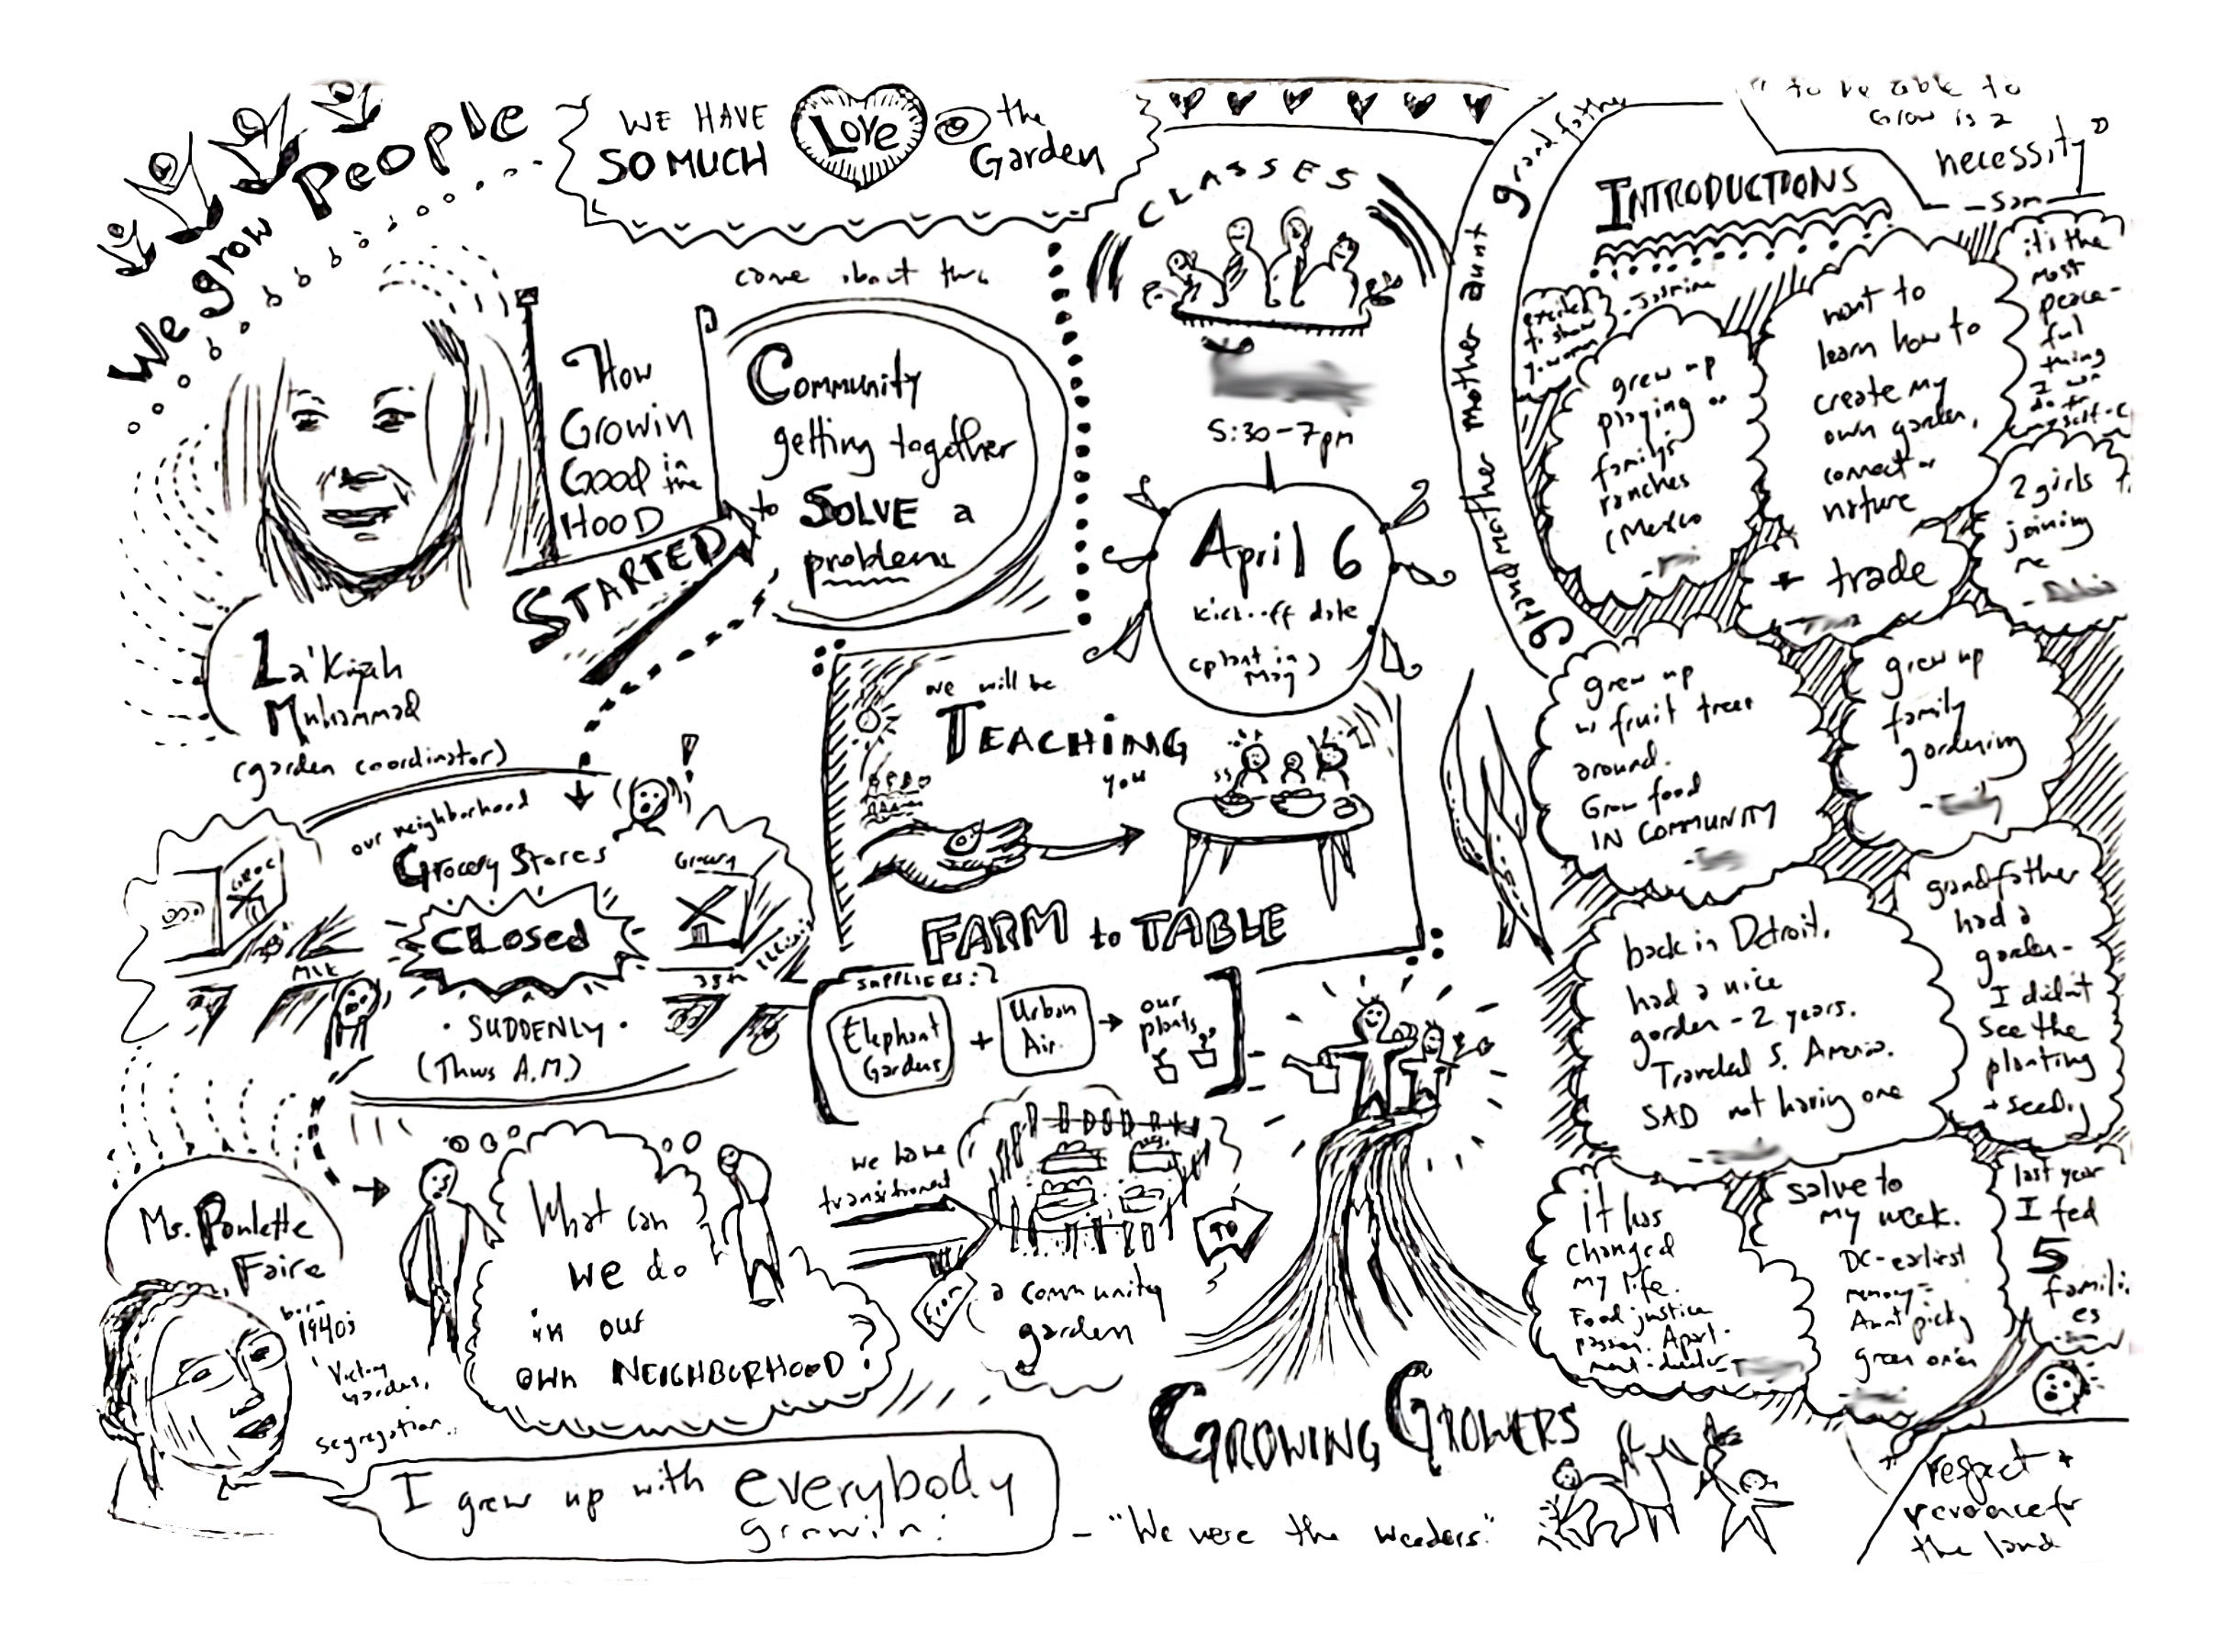 We grow People
WE HAVE
SO MUCH
Love
the
Garden
come about this
How
Growin
Good in the
HOOD
STARTED
Community
getting together
to SOLVE a
problem
La'Kijah
Muhammad
(garden coordinator)
CLASSES
5:30-7pm
April 6
kick-off date
(plant in
May)
we will be
TEACHING
you
FARM to TABLE
our neighborhood
Grocery Stores
GROC
Grocery
CLOSED
MLK
38th
ILLINOIS
SUDDENLY
(Thurs A.M.)
SUPPLIERS:
Elephant
Gardens
+
Urban
Air
our
plants
Ms. Paulette
Faire
born
1940s
Victory
Gardens,
segregation..
What can
we do
in our
own NEIGHBORHOOD?
we have
transitioned
from
a community
garden
TO
GROWING GROWERS
I grew up with everybody
growin'
- "We were the weeders."
Grandmother mother aunt grandfather
"to be able to
Grow is a
necessity"
- Sam
INTRODUCTIONS
excited
to show
y.women
- Jasmine
grew up
playing on
family's
ranches
(Mexico
want to
learn how to
create my
own garden,
connect w
nature
+ trade
it's the
most
peace-
ful
thing
I can
do for
myself
2 girls
joining
me
grew up
w fruit trees
around.
Grow food
IN COMMUNITY
grew up
family
gardening
- Emily
back in Detroit,
had a nice
garden - 2 years.
Traveled S. America.
SAD not having one
grandfather
had a
garden-
I didn't
see the
planting
+ seeding
it has
changed
my life.
Food justice
passion. Apart-
ment-dweller
salve to
my week.
DC-earliest
memory=
Aunt picking
green onion
last year
I fed
5
famili-
es
respect +
reverence for
the land